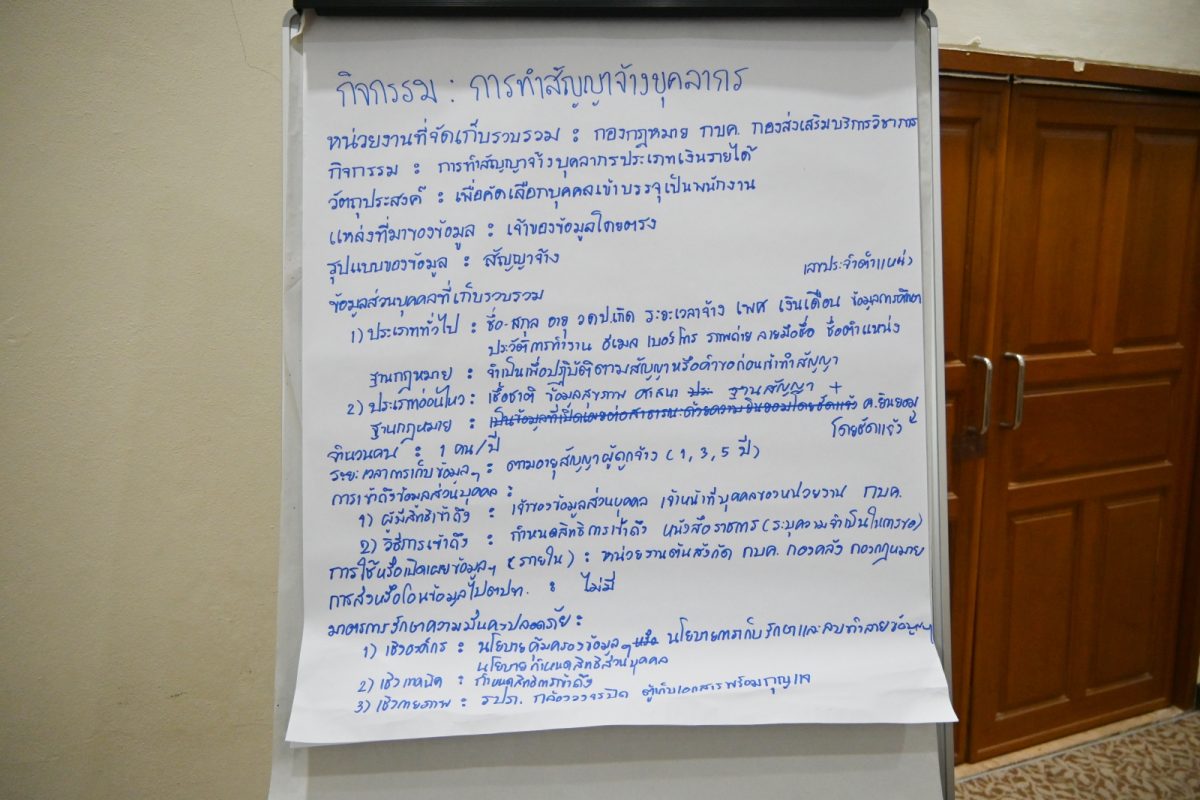 กิจกรรม : การทำสัญญาจ้างบุคลากร
หน่วยงานที่จัดเก็บรวบรวม : กองกฎหมาย กบค. กองส่งเสริมบริการวิชาการ
กิจกรรม : การทำสัญญาจ้างบุคลากรประเภทเงินรายได้
วัตถุประสงค์ : เพื่อคัดเลือกบุคคลเข้าบรรจุเป็นพนักงาน
แหล่งที่มาของข้อมูล : เจ้าของข้อมูลโดยตรง
รูปแบบของข้อมูล : สัญญาจ้าง
ข้อมูลส่วนบุคคลที่เก็บรวบรวม
เลขประจำตำแหน่ง
1) ประเภททั่วไป : ชื่อ-สกุล อายุ วดป.เกิด ระยะเวลาจ้าง เพศ เงินเดือน ข้อมูลการศึกษา
ประวัติการทำงาน อีเมล เบอร์โทร ภาพถ่าย ลายมือชื่อ ชื่อตำแหน่ง
ฐานกฎหมาย : จำเป็นเพื่อปฏิบัติตามสัญญาหรือคำขอก่อนเข้าทำสัญญา
2) ประเภทอ่อนไหว : เชื้อชาติ ข้อมูลสุขภาพ ศาสนา ประ ฐานสัญญา +
ฐานกฎหมาย : เป็นข้อมูลที่เปิดเผยต่อสาธารณะด้วยความยินยอมโดยชัดแจ้ง ค.ยินยอม
โดยชัดแจ้ง
จำนวนคน : 1 คน/ปี
ระยะเวลาการเก็บข้อมูลฯ : ตามอายุสัญญาผู้ถูกจ้าง (1, 3, 5 ปี)
การเข้าถึงข้อมูลส่วนบุคคล :
1) ผู้มีสิทธิเข้าถึง : เจ้าของข้อมูลส่วนบุคคล เจ้าหน้าที่บุคคลของหน่วยงาน กบค.
2) วิธีการเข้าถึง : กำหนดสิทธิการเข้าถึง หนังสือราชการ (ระบุความจำเป็นในการขอ)
การใช้หรือเปิดเผยข้อมูลฯ (ภายใน) : หน่วยงานต้นสังกัด กบค. กองคลัง กองกฎหมาย
การส่งหรือโอนข้อมูลไปตปท. : ไม่มี
มาตรการรักษาความมั่นคงปลอดภัย :
1) เชิงองค์กร : นโยบายคุ้มครองข้อมูลฯ หรือ นโยบายการเก็บรักษาและลบทำลายข้อมูลฯ
นโยบายกำหนดสิทธิส่วนบุคคล
2) เชิงเทคนิค : กำหนดสิทธิการเข้าถึง
3) เชิงกายภาพ : รปภ. กล้องวงจรปิด ตู้เก็บเอกสารพร้อมกุญแจ